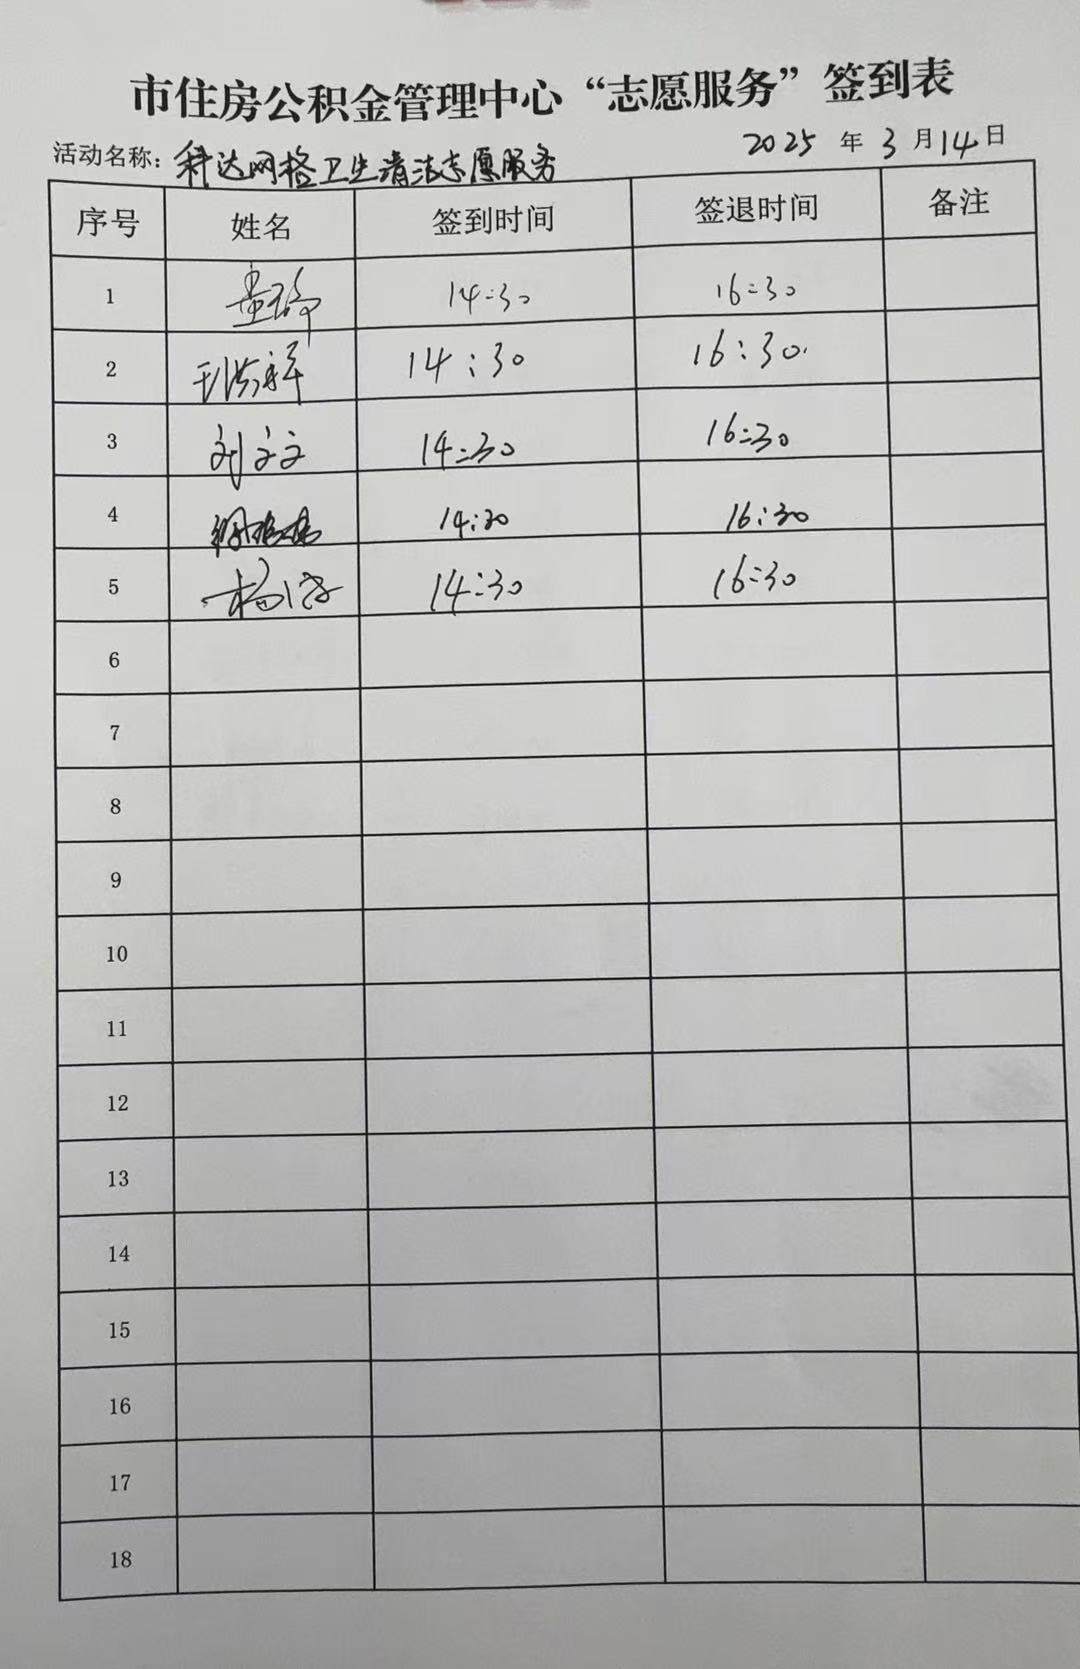 市住房公积金管理中心“志愿服务”签到表
活动名称：科达网格卫生清洁志愿服务 2025年3月14日
序号 姓名 签到时间 签退时间 备注
1 14:30 16:30
2 14:30 16:30
3 刘文文 14:30 16:30
4 14:30 16:30
5 14:30 16:30
6
7
8
9
10
11
12
13
14
15
16
17
18